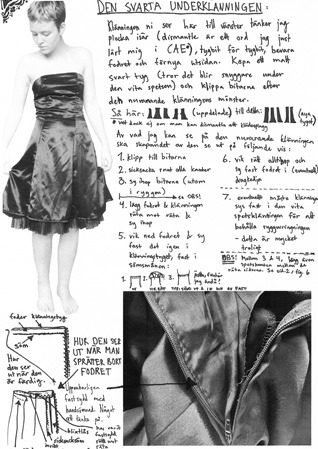 DEN SVARTA UNDERKLÄNNINGEN:
Klänningen ni ser här till vänster tänker jag
plocka isär (dismantle är ett ord jag just
lärt mig i (AE*), tygbit för tygbit, bevara
fodret och förnya utsidan. Köpa ett matt
svart tyg (tror det blir snyggare under
den vita spetsen) och klippa bitarna efter
den nuvarande klänningens mönster.
Så här: (uppdelade) till detta: (nya)
* vet dock ej om man kan dismantle ett klädesplagg
Av vad jag kan se på den nuvarande klänningen
ska skapandet av den se ut på följande vis:
1. klipp till bitarna
2. sicksacka runt alla kanter
3. sy ihop bitarna (utom
i ryggen)
OBS!
4. lägg fodret & klänningen
räta mot räta &
sy ihop
5. vik ned fodret & sy
fast det igen i
klänningstyget, fast i
sömsmånen:
6. vik rätt allthop och
sy fast fodret i (eventuell)
dragkedja
7. eventuellt måste klänningen
sys fast i den vita
spetsklänningen för att
behålla ryggurringningen
- detta är mycket
troligt
OBS! Mellan 3 & 4, lägg även
1. 2. 3.
foder klänningstyg
söm
Hur
den ser
ut när den
är färdig.
HUR DEN SER
UT NÄR MAN
SPRÄTTER BORT
FODRET
Uppenbarligen
fastsydd med
handsömnad. Något
att tänka på.